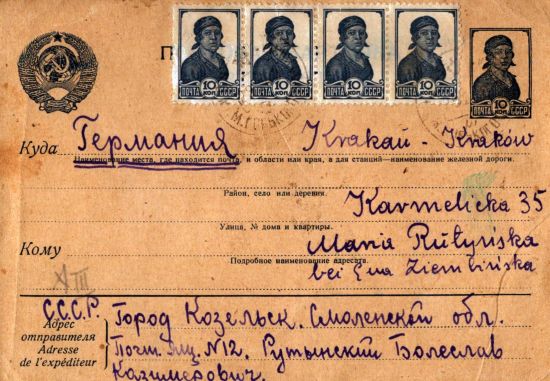 ПОЧТА 10 КОП СССР
ПОЧТА 10 КОП СССР
ПОЧТА 10 КОП СССР
ПОЧТА 10 КОП СССР
ПОЧТА 10 КОП СССР
Куда Германия Krakau - Kraków
Наименование места, где находится почта, и области или края, а для станций—наименование железной дороги.
Район, село или деревня.
Karmelicka 35
Улица, № дома и квартиры.
Кому Maria Rutyńska
Подробное наименование адресата.
bei Ewa Ziembińska
С.С.С.Р. Город Козельск. Смоленской обл.
Адрес отправителя
Adresse de l'expéditeur
Почт. ящ. №12. Рутынский Болеслав
Казимерович.